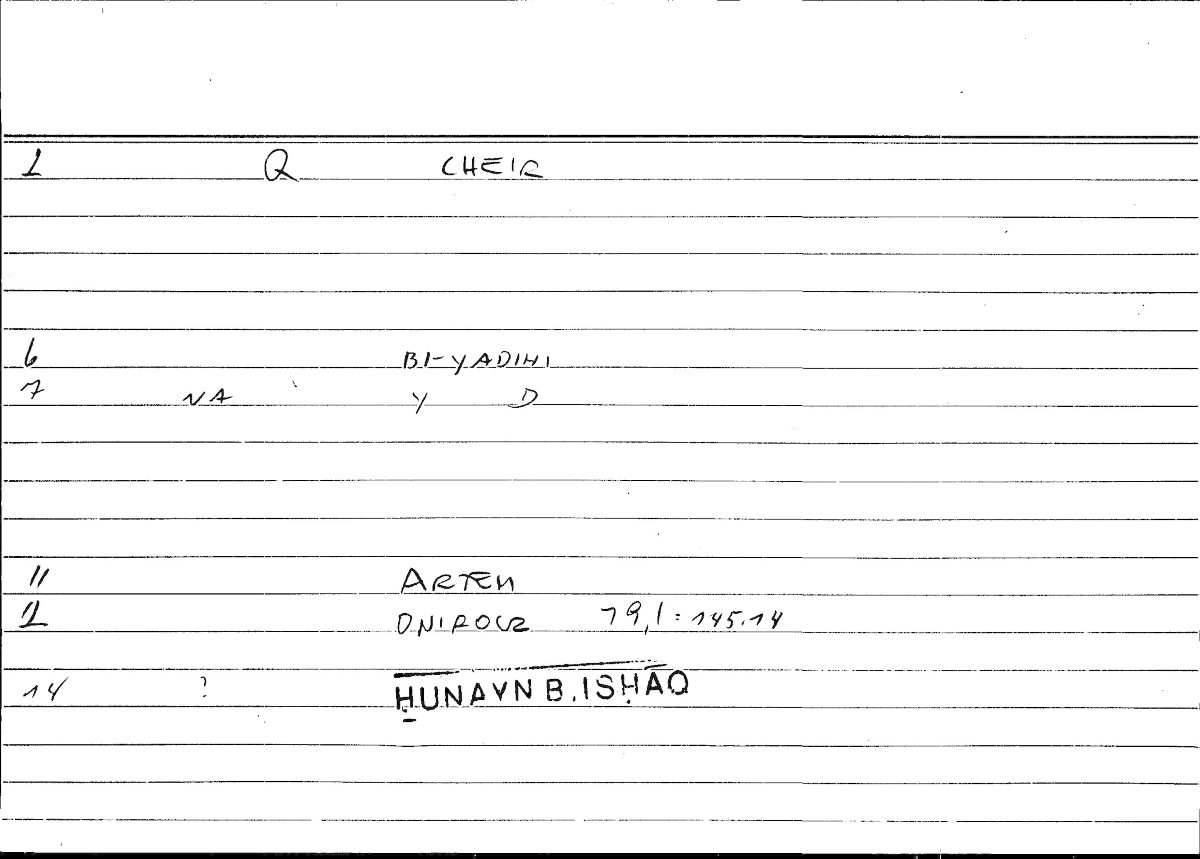 1 Q CHEIR
6 BI-YADIHI
7 NA Y D
11 ARTEM
12 ONIROCR 79,1 = 145.14
14 ? ḤUNAYN B. ISḤĀQ